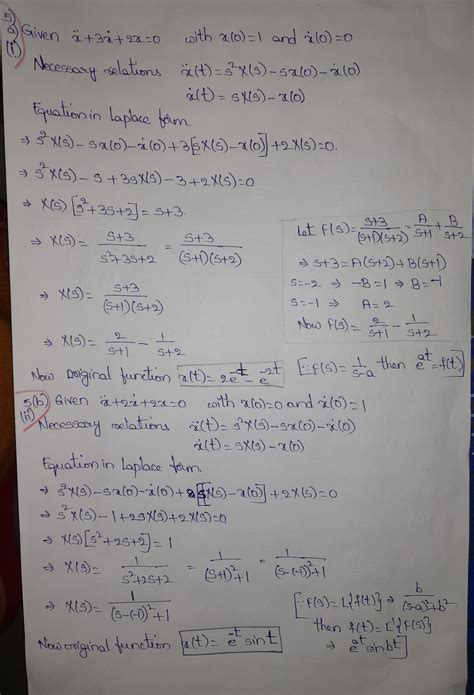 5)
a) Given ẍ+3ẋ+2x=0 with x(0)=1 and ẋ(0)=0
(i)
Necessary relations ẍ(t)=s²X(s)-sx(0)-ẋ(0)
ẋ(t)=sX(s)-x(0)
Equation in Laplace form
⇒ s²X(s)-sx(0)-ẋ(0)+3[sX(s)-x(0)]+2X(s)=0.
⇒ s²X(s)-s+3sX(s)-3+2X(s)=0
⇒ X(s)[s²+3s+2]=s+3
⇒ X(s)= (s+3)/(s²+3s+2) = (s+3)/((s+1)(s+2))
⇒ X(s)= (s+3)/((s+1)(s+2))
⇒ X(s)= 2/(s+1) - 1/(s+2)
Let F(s)= (s+3)/((s+1)(s+2)) = A/(s+1) + B/(s+2)
⇒ s+3=A(s+2)+B(s+1)
s=-2 ⇒ -B=1 ⇒ B=-1
s=-1 ⇒ A=2
Now F(s)= 2/(s+1) - 1/(s+2)
Now original function x(t)=2e^-t-e^-2t [∵F(s)=1/(s-a) then e^at=f(t)]
5(b) Given ẍ+2ẋ+2x=0 with x(0)=0 and ẋ(0)=1
(ii)
Necessary relations ẍ(t)=s²X(s)-sx(0)-ẋ(0)
ẋ(t)=sX(s)-x(0)
Equation in Laplace form
⇒ s²X(s)-sx(0)-ẋ(0)+2[sX(s)-x(0)]+2X(s)=0
⇒ s²X(s)-1+2sX(s)+2X(s)=0
⇒ X(s)[s²+2s+2]=1
⇒ X(s)= 1/(s²+2s+2) = 1/((s+1)²+1) = 1/((s-(-1))²+1)
⇒ X(s)= 1/((s-(-1))²+1)
[∵F(s)=L{f(t)} ⇒ b/((s-a)²+b²)
then f(t)=L⁻¹{F(s)}
⇒ e^at sinbt]
Now original function x(t)=e^-t sint